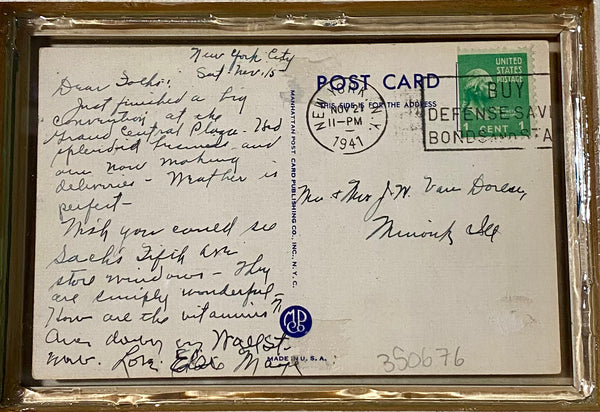 New York City
Sat Nov. 15
Dear Folks:
Just finished a big
convention at the
Grand Central Plaza. Had
splendid business and
are now making
deliveries - Weather is
perfect -
Wish you could see
Sachs Fifth Ave
store windows - They
are simply wonderful -
How are the vitamins?
Am down in Wall St.
now. Love Elsie
MANHATTAN POST CARD PUBLISHING CO., INC., N. Y. C.
POST CARD
THIS SIDE IS FOR THE ADDRESS
NEW YORK, N.Y.
NOV 21
11-PM
1941
UNITED
STATES
POSTAGE
CENT 1
BUY
DEFENSE SAVI
BONDS STA
Mr & Mrs J. W. Van Doren,
Minonk Ill
MADE IN U. S. A.
350676